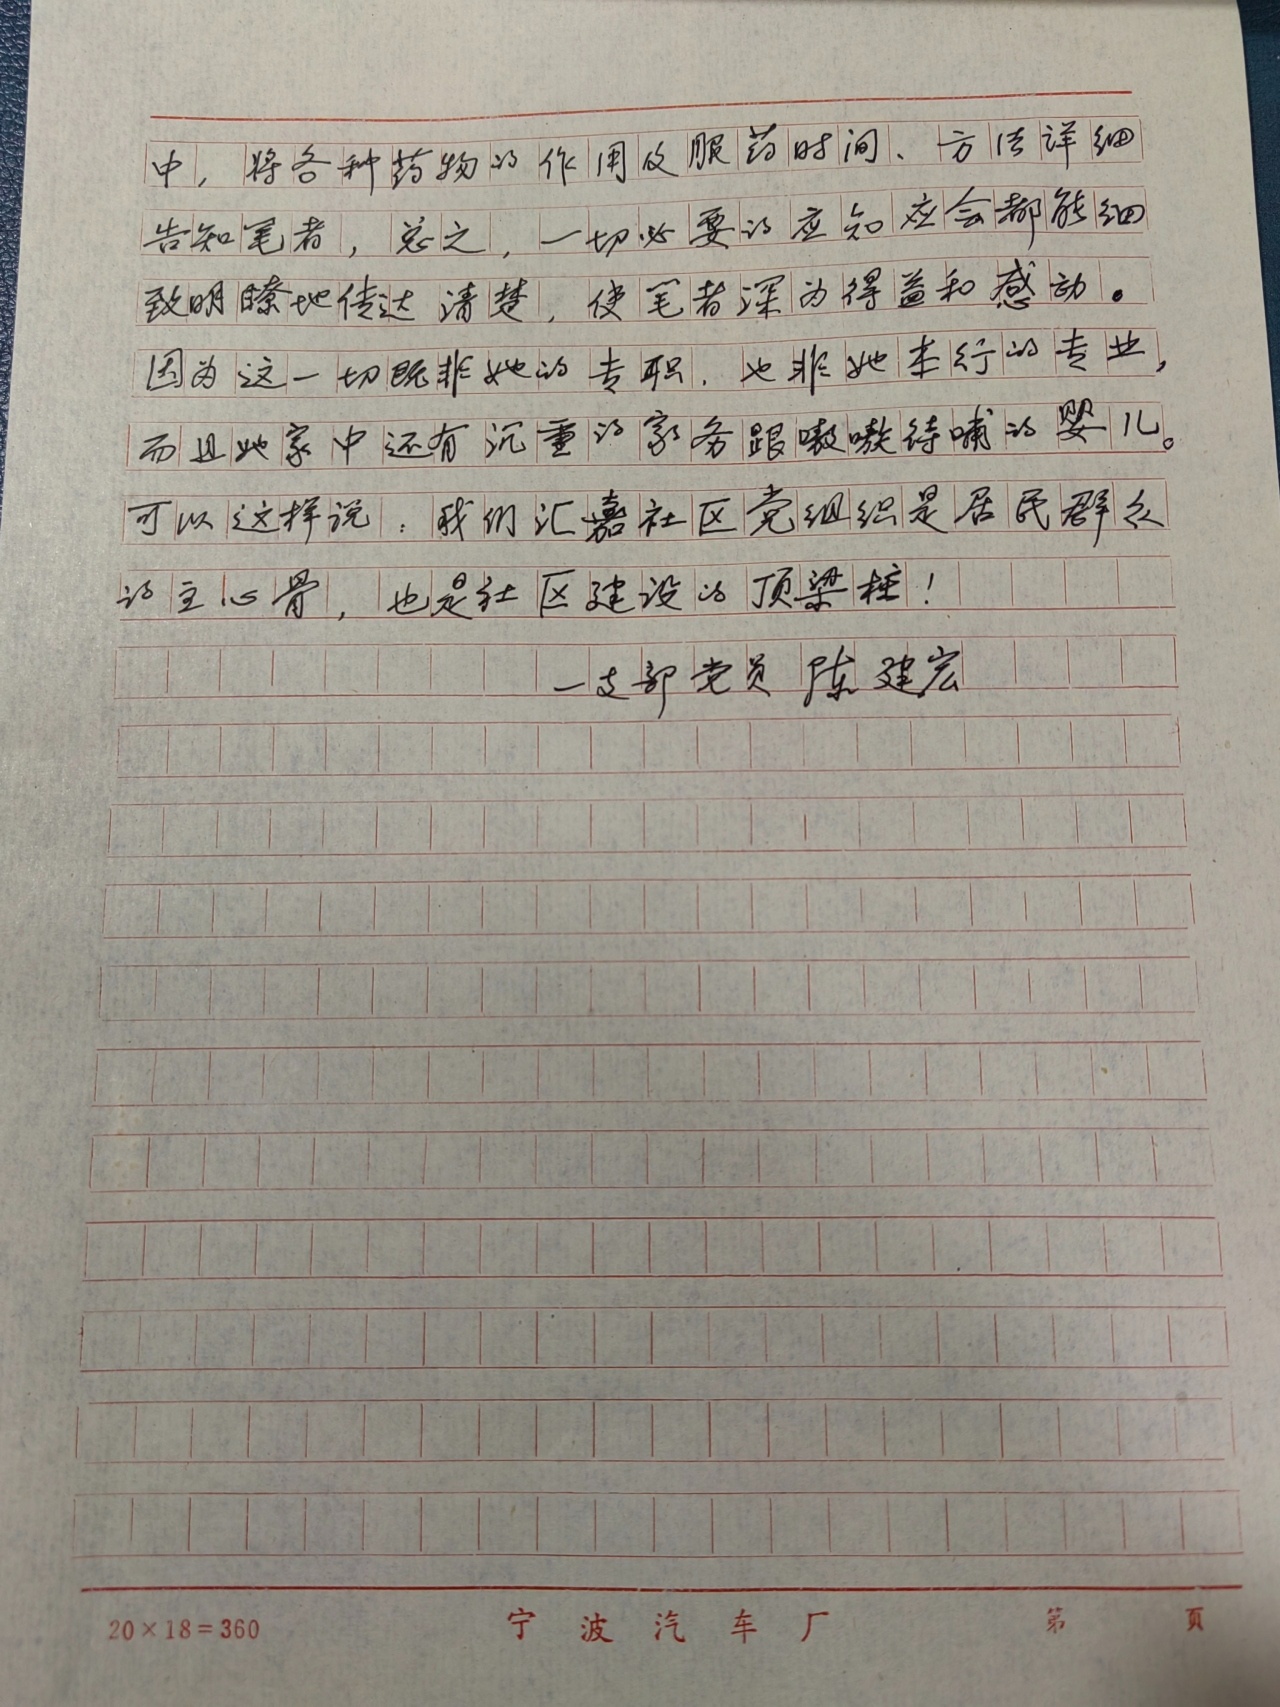 中，将各种药物的作用及服药时间、方法详细
告知笔者，总之，一切必要的应知应会都能细
致明瞭地传达清楚，使笔者深为得益和感动。
因为这一切既非她的专职，也非她本行的专业，
而且她家中还有沉重的家务跟嗷嗷待哺的婴儿。
可以这样说：我们汇嘉社区党组织是居民群众
的主心骨，也是社区建设的顶梁柱！
一支部党员 陈建宏
20×18=360 宁波汽车厂 第 页